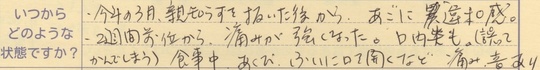 いつから
どのような
状態ですか?
・今年の3月、親知らずを抜いた後から、あごに違和感。
・2週間前位から、痛みが強くなった。口内炎も。(誤って
かんでしまう) 食事中、あくび、ふいに口を開くなど 痛み、音あり